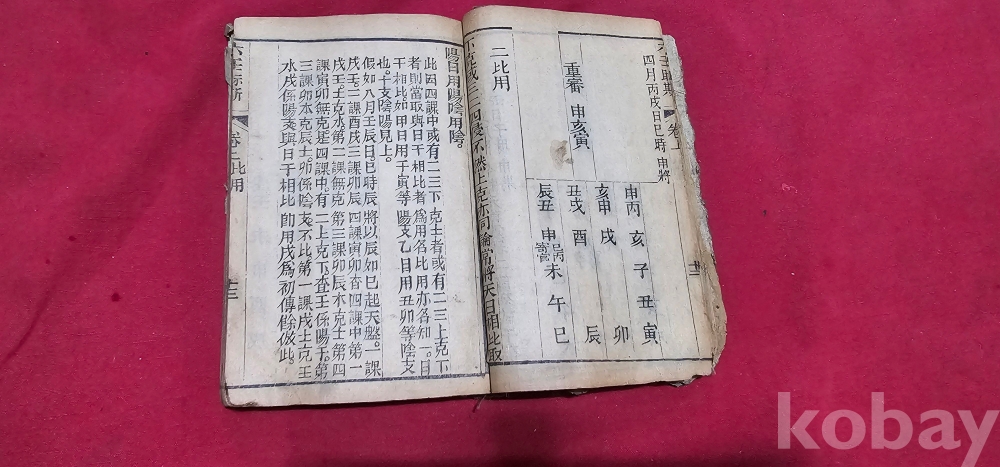 四月丙戌日巳時 申將
卷上
重審 申亥寅
申丙 亥 子 丑 寅
亥申 戌 卯
丑戌 酉 辰
辰丑 申 未 午 巳
二比用
陽日用陽陰用陰。
此因四課中或有二三下克上者或有二三上克下
者則當取與日干相比者爲用名比用亦名知一。日
干相比如甲日用子寅等陽支乙日用丑卯等陰支
也。十支陰陽見上。
假如八月壬辰日巳時辰將以辰加巳起天盤。一課
戌壬。二課酉戌三課卯辰四課寅卯查四課中第一
戌壬土克水第二課無克第三課卯辰木克土第四
課寅卯無克是四課中有二上克下查壬係陽干。第
三課卯木克辰土卯係陰支不比第一課戌土克壬
水戌係陽支與日干相比卽用戌爲初傳餘倣此。
卷上 比用
十三
kobay